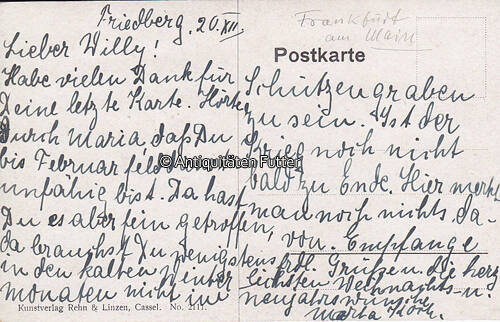 Friedberg, 20.XII.
Frankfurt
am Main
Postkarte
Lieber Willy!
Habe vielen Dank für
Deine letzte Karte. Hörte
durch Maria, daß Du
bis Februar felddienst
unfähig bist. Da hast
Du es aber fein getroffen,
da brauchst Du wenigstens
in den kalten Winter
monaten nicht im
Schützengraben
zu sein. Ist der
Krieg noch nicht
bald zu Ende. Hier merkt
man noch nichts da-
von. Empfange
frdl. Grüßen, die herz
lichsten Weihnachts- u.
neujahrswünsche
Marta Koch.
© Antiquitäten Futter
Kunstverlag Rehn & Linzen, Cassel. No. 2111.